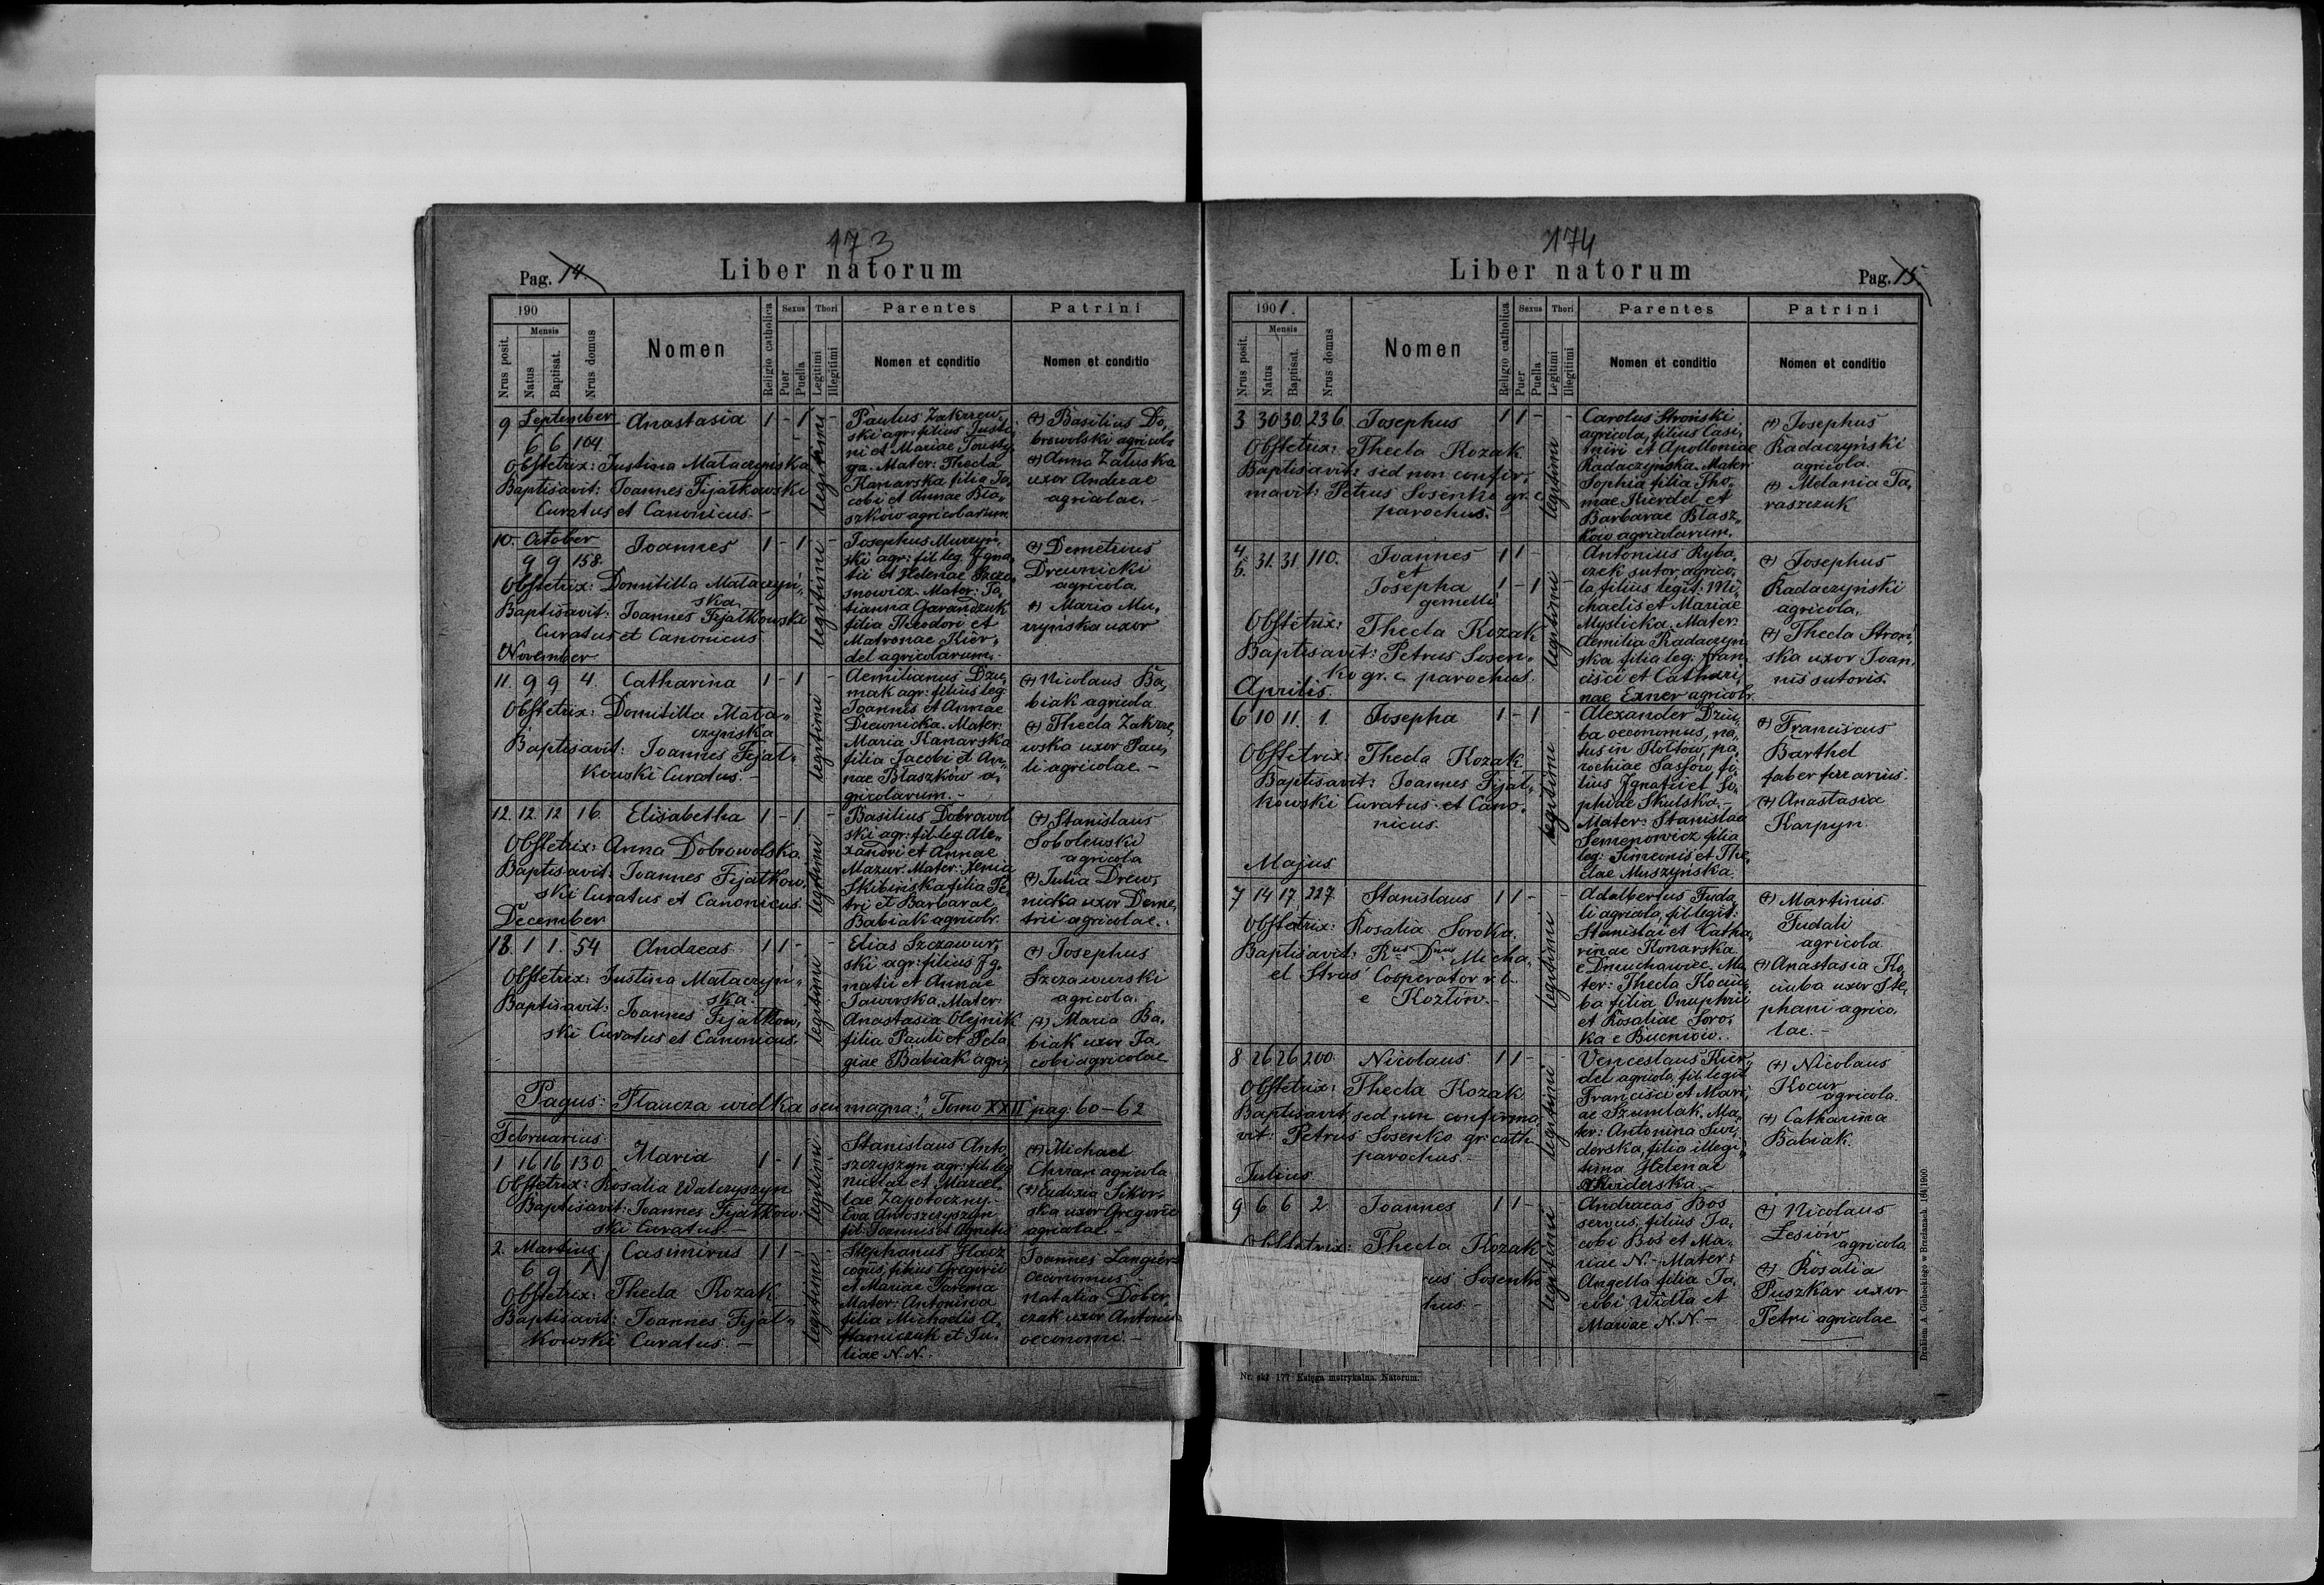 173
Pag. 14.
Liber natorum
190
Nrus posit.
Mensis
Natus
Baptisat.
Nrus domus
Nomen
Religio catholica
Sexus
Puer
Puella
Thori
Legitimi
Illegitimi
Parentes
Nomen et conditio
Patrini
Nomen et conditio
9 September
6 6 104
Anastasia 1 - 1 -
legitimi
Obstetrix: Justina Mataczyńska
Baptisavit: Joannes Fijałkowski
Curatus et Canonicus. -
Paulus Zakrzew„
ski agr: filius Justi„
ni et Mariae
ga. Mater: Thecla
Kanarska filia Ja„
cobi et Annae Bła„
szków agricolarum
(+) Basilius Do„
browolski agricola
(+) Anna Załuska
uxor Andreae
agricolae. -
10. October
9 9 158.
Joannes 1 - 1 -
legitimi
Obstetrix: Domitilla Mataczyń„
ska
Baptisavit: Joannes Fijałkowski
Curatus et Canonicus
Josephus Murzyń„
ski agr: fil. leg. Igna„
tii et Helenae
snowicz. Mater: Ta„
tianna Garanczuk
filia Theodori et
Matronae Kier„
del agricolarum.
(+) Demetrius
Drewnicki
agricola
(+) Maria Mu„
rzyńska uxor
November
11. 9 9 4. Catharina 1 - 1 -
legitimi
Obstetrix: Domitilla Mata„
czyńska
Baptisavit: Joannes Fijał„
kowski Curatus. -
Aemilianus Dzu„
mak agr: filius leg
Joannis et Annae
Drewnicka. Mater:
Maria Kanarska
filia Jacobi et An„
nae Błaszków a„
gricolarum. -
(+) Nicolaus Ba„
biak agricola
(+) Thecla Zakrze„
wska uxor Pau„
li agricolae -
12. 12. 12 16. Elisabetha 1 - 1 -
legitimi
Obstetrix: Anna Dobrowolska
Baptisavit: Joannes Fijałkow„
ski Curatus et Canonicus.
Basilius Dobrowol„
ski agr: fil. leg. Ale„
xandri et Annae
Mazur. Mater: Xenia
Skibińska filia Pe„
tri et Barbarae
Babiak agricolr.
(+) Stanislaus
Sobolewski
agricola
(+) Julia Drew„
nicka uxor Deme„
trii agricolae.
December
13. 1 1. 54 Andreas 1 1 - -
legitimi
Obstetrix: Justina Mataczyń„
ska
Baptisavit: Joannes Fijałkow„
ski Curatus et Canonicus.
Elias Szczawur„
ski agr: filius Ig„
natii et Annae
Jaworska. Mater:
Anastasia Olejnik
filia Pauli et Pela„
giae Babiak agri„
(+) Josephus
Szczawurski
agricola.
(+) Maria Ba„
biak uxor Ja„
cobi agricolae
Pagus: Płaucza wielka seu magna: "Tomo XXII" pag. 60-62
Februarius
1 16 16 130 Maria 1 - 1 -
legitimi
Obstetrix: Rosalia Walczyszyn
Baptisavit: Joannes Fijałkow„
ski Curatus -
Stanislaus Anto„
szczyszyn agr: fil. leg
Nicolai et Marcel„
lae Zapotoczny. -
Eva Antoszczyszyn
fil. Joannis et Agnetis
(+) Michael
Chrzan agricola
(+) Eudoxia Sikor„
ska uxor Gregorii
agricolae -
2. Martius
6 9
Casimirus 1 1 - -
legitimi
Obstetrix: Thecla Kozak
Baptisavit: Joannes Fijał„
kowski Curatus. -
Stephanus
coquus, filius Gregorii
et Mariae Jarema
Mater: Antonina
filia Michaelis A„
damczuk et Ju„
liae N. N.
Joannes Langier
oeconomus
Natalia Dober„
czak uxor Antonii
oeconomi. -
174
Liber natorum
Pag. 15.
1901.
Nrus posit.
Mensis
Natus
Baptisat.
Nrus domus
Nomen
Religio catholica
Sexus
Puer
Puella
Thori
Legitimi
Illegitimi
Parentes
Nomen et conditio
Patrini
Nomen et conditio
3 30 30. 236. Josephus 1 1 - -
legitimi
Obstetrix: Thecla Kozak
Baptisavit: sed non confir„
mavit: Petrus Sosenko gr. c
parochus. -
Carolus Stroński
agricola, filius Casi„
miri et Apolloniae
Radaczyńska. Mater:
Sophia filia Tho„
mae Kierdel et
Barbarae Błasz„
ków agricolarum.
(+) Josephus
Radaczyński
agricola.
(+) Melania Ta„
raszczuk
4 5. 31. 31 110. Joannes 1 1 -
et
Josepha 1 - 1 -
gemelli
legitimi
Obstetrix: Thecla Kozak
Baptisavit: Petrus Sosen„
ko gr. c. parochus.
Antonius Ryba„
czek sutor, agrico„
la, filius legit: Mi„
chaelis et Mariae
Myslicka. Mater:
Aemilia Radaczyń„
ska filia leg: Fran„
cisci et Cathari„
nae Exner agricolr.
(+) Josephus
Radaczyński
agricola.
(+) Thecla Stroń„
ska uxor Joan„
nis sutoris.
Aprilis.
6 10 11. 1. Josepha 1 - 1 -
legitimi
Obstetrix: Thecla Kozak
Baptisavit: Joannes Fijał„
kowski Curatus et Cano„
nicus.
Alexander Dziu„
ba oeconomus, na„
tus in Kołtów, pa„
rochiae Sassów fi„
lius Ignatii et So„
phiae Skulska. -
Mater: Stanislaa
Semenowicz filia
leg: Simeonis et The„
clae Muszyńska.
(+) Franciscus
Barthel
faber ferrarius.
(+) Anastasia
Karpyn
Majus
7 14 17 227 Stanislaus 1 1 -
legitimi
Obstetrix: Rosalia Soroka.
Baptisavit: Rus Dnus Micha„
el Struś Cooperator r. l.
e Kozłów. -
Adalbertus Fuda„
li agricola, fil. legit:
Stanislai et Catha„
rinae Konarska
e Dmuchawiec. Ma„
ter: Thecla Kociu„
ba filia Onuphrii
et Rosaliae Soro„
ka e Bucniów.
(+) Martinus
Fudali
agricola
(+) Anastasia Ko„
ciuba uxor Ste„
phani agrico„
lae. -
8 26 26 200. Nicolaus 1 1 - -
legitimi
Obstetrix: Thecla Kozak
Baptisavit, sed non confirma„
vit: Petrus Sosenko gr. cath
parochus -
Venceslaus Kier„
del agricola, fil. legit
Francisci et Mari„
ae Szumlak. Ma„
ter: Antonina Świ„
derska, filia illegi„
tima Helenae
Świderska. -
(+) Nicolaus
Kocur
agricola.
(+) Catharina
Babiak.
Julius
9 6 6 2 Joannes 1 1 -
legitimi
Obstetrix: Thecla Kozak
rus Sosenko
hus. -
Andreas Bos
servus, filius Ja„
cobi Bos et Ma„
riae N. - Mater:
Angella filia Ja„
cobi Widła et
Mariae N. N. -
(+) Nicolaus
Lesiów
agricola
(+) Rosalia
Puszkar uxor
Petri agricolae
Nr. skł 177 Księga metrykalna. Natorum.
Drukiem A. Cichockiego w Brzeżanach. 184/1900